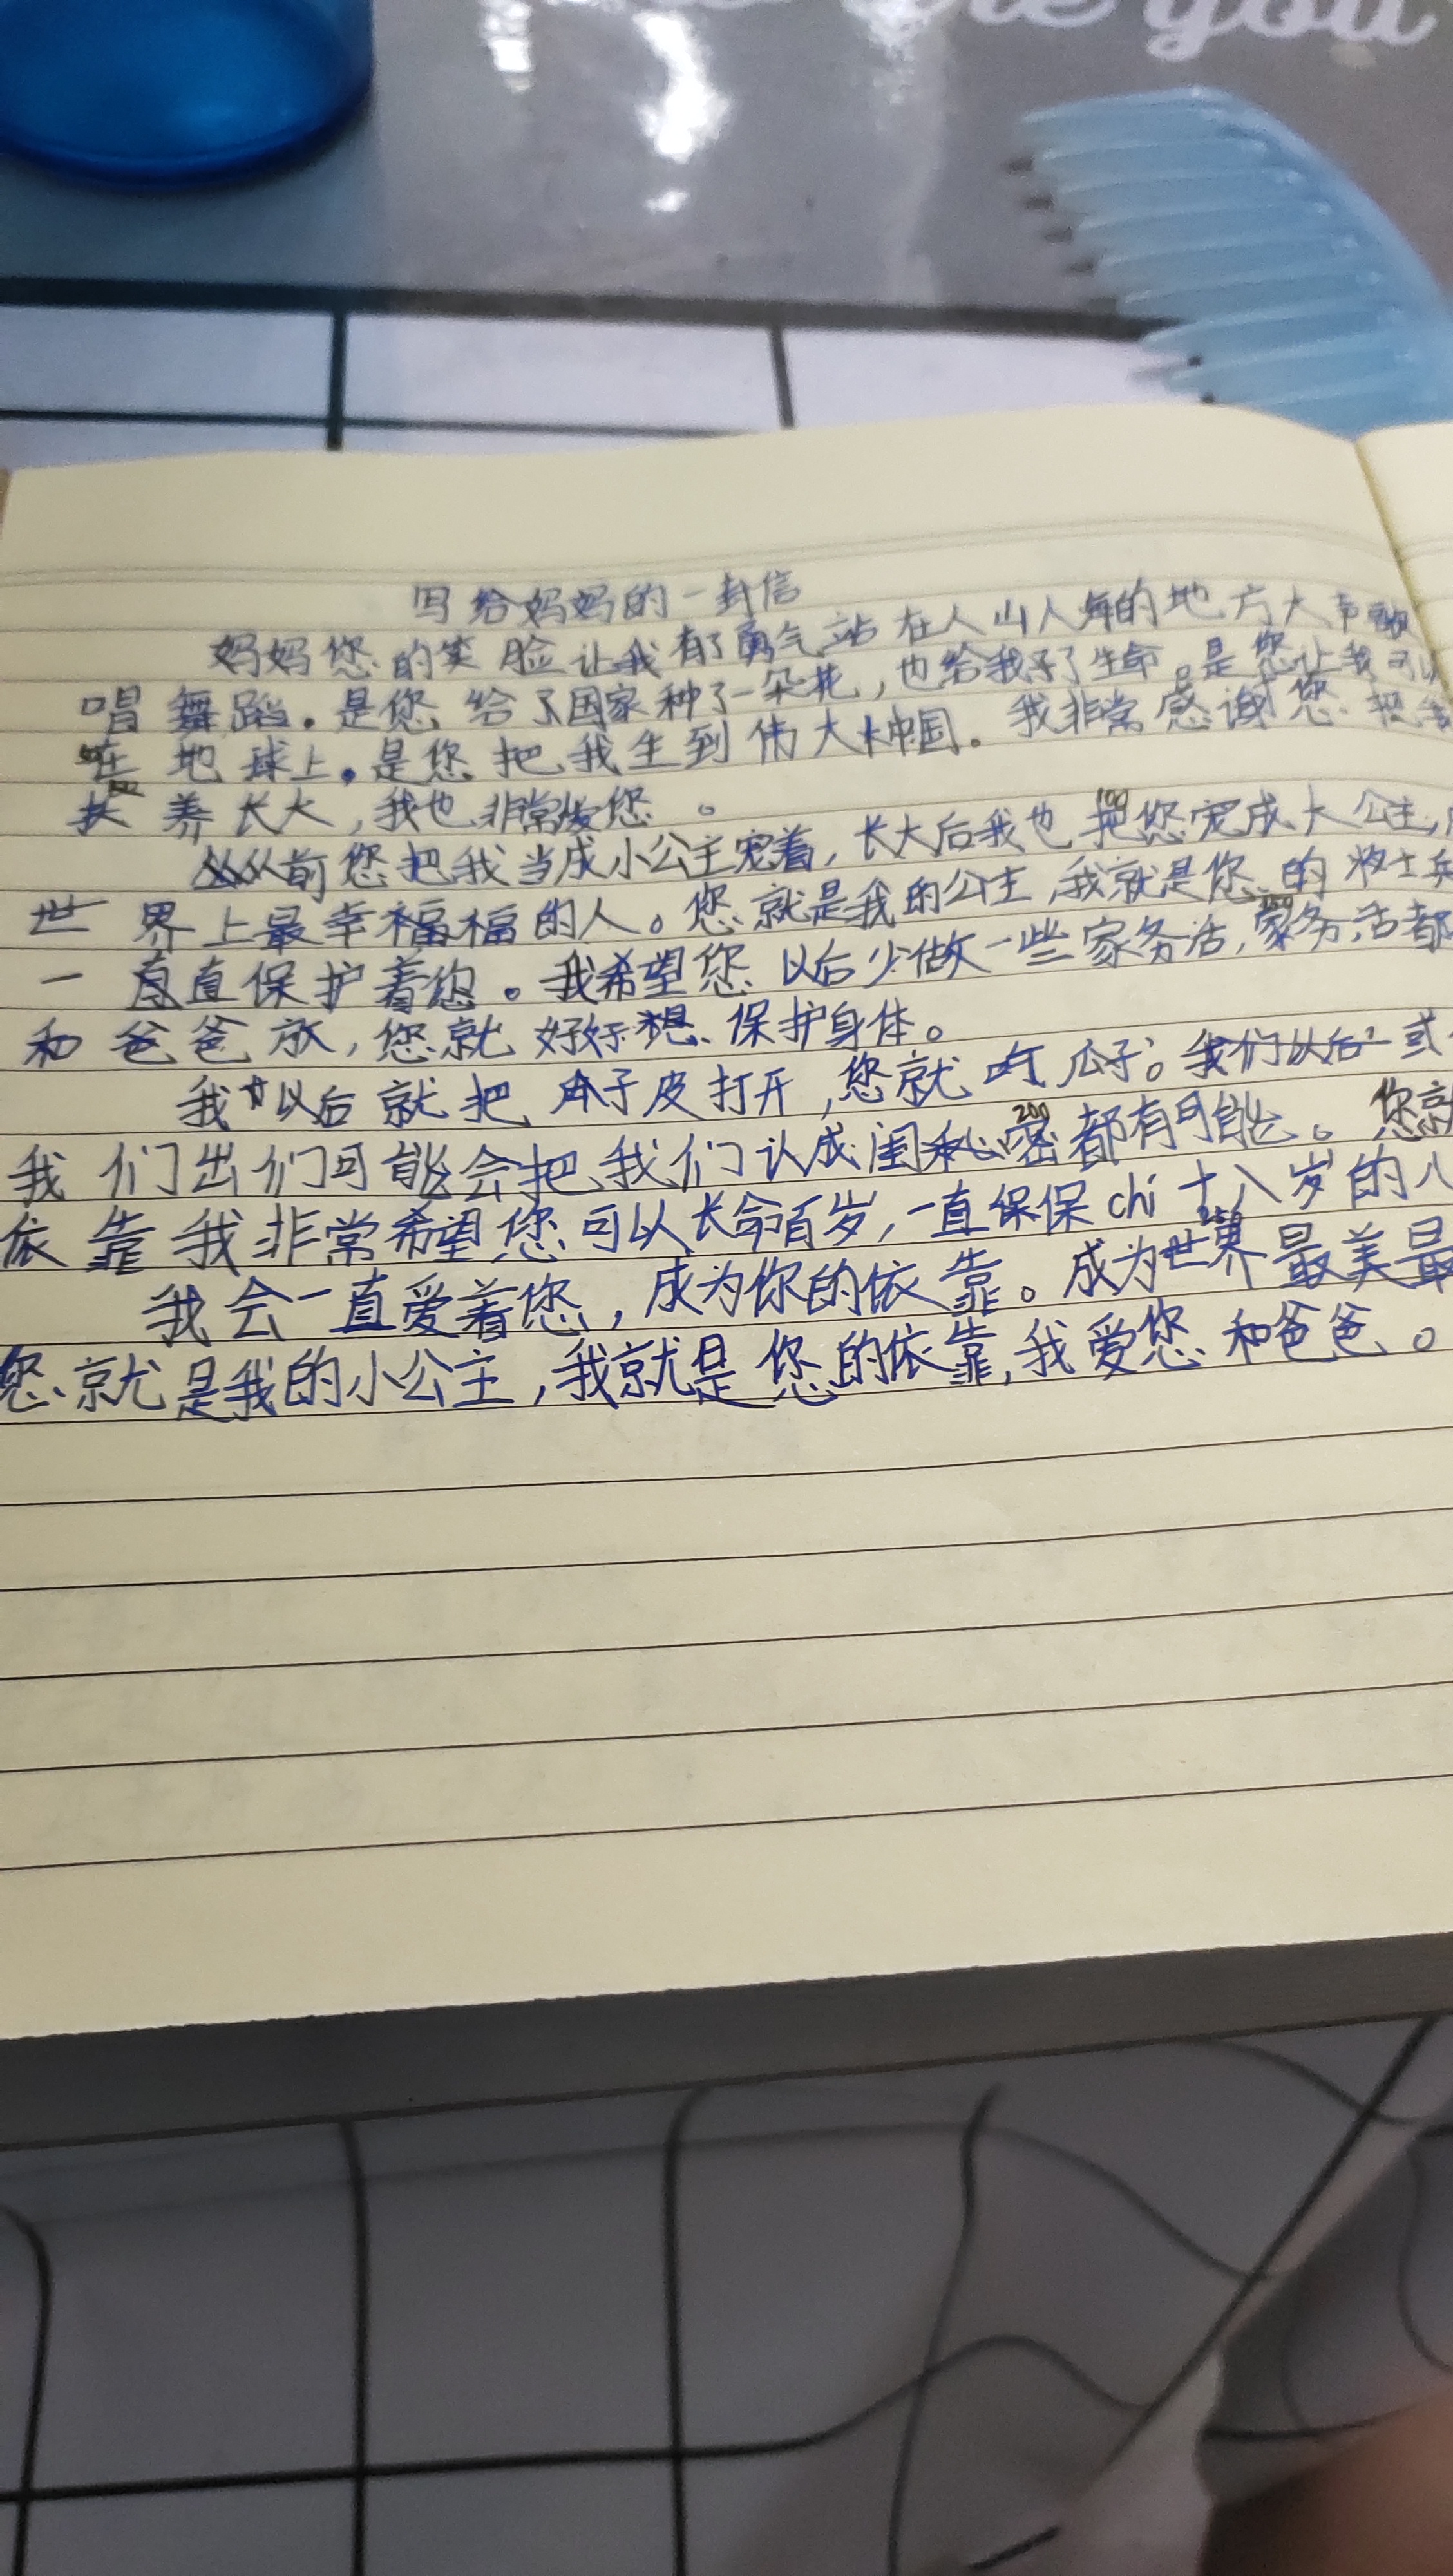 you
写给妈妈的一封信
妈妈您的笑脸让我有了勇气站在人山人海的地方大声
唱舞蹈。是您给了国家种了一朵花，也给我了生命。是您让我可以
在地球上。是您把我生到伟大中国。我非常感谢您把我
扶养长大，我也非常爱您。
从前您把我当成小公主宠着，长大后我也把您宠成大公主，
100
世界上最幸福福的人。您就是我的公主，我就是您的将士兵
一直直保护着您。我希望您以后少做一些家务活，家务活都
和爸爸放，您就好好想保护身体。
我以后就把子皮打开，您就吃瓜子。我们以后或
我们出们可能会把我们认成闺秘密都有可能。您就
200
依靠我非常希望您可以长命百岁，一直保保chi十八岁的
我会一直爱着您，成为你的依靠。成为世界最美最
您就是我的小公主，我就是您的依靠，我爱您和爸爸。